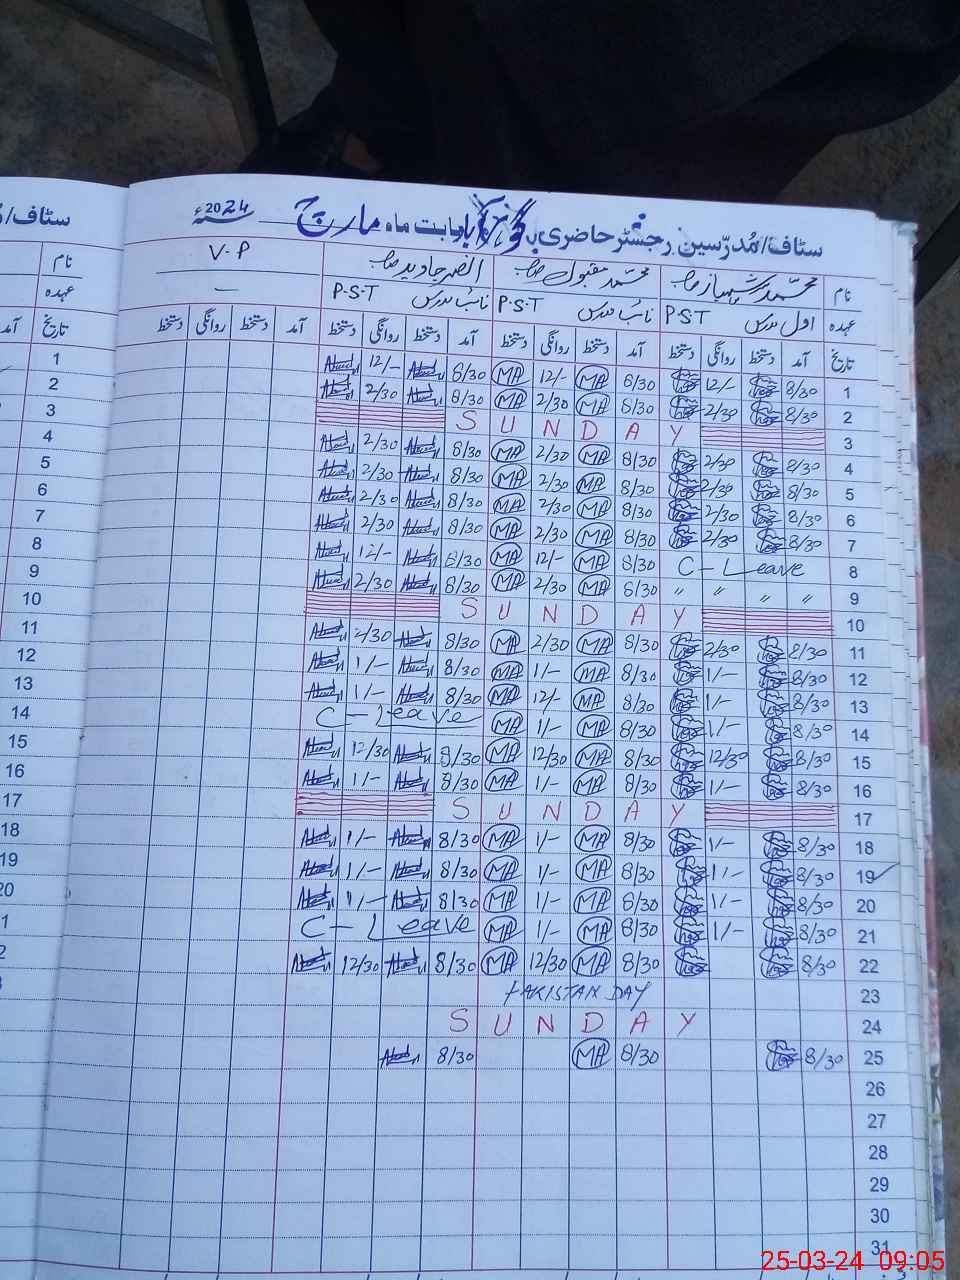 سٹاف/مُدرّسین رجسٹر حاضری بابت ماہ مارچ 2024ء
نام محمد شہباز صاحب محمد مقبول صاحب النصر جاوید صاحب V.P
عہدہ اول مدرس P.S.T نائب مدرس P.S.T نائب مدرس P.S.T –
تاریخ آمد دستخط روانگی دستخط آمد دستخط روانگی دستخط آمد دستخط روانگی دستخط آمد دستخط روانگی دستخط
1 8/30 12/- 8/30 MA 12/- MA 8/30 12/-
2 8/30 2/30 8/30 MA 2/30 MA 8/30 2/30
3 SUNDAY
4 8/30 2/30 8/30 MA 2/30 MA 8/30 2/30
5 8/30 2/30 8/30 MA 2/30 MA 8/30 2/30
6 8/30 2/30 8/30 MA 2/30 MA 8/30 2/30
7 8/30 2/30 8/30 MA 2/30 MA 8/30 2/30
8 C-Leave 8/30 MA 12/- MA 8/30 12/-
9 " " " " 8/30 MA 2/30 MA 8/30 2/30
10 SUNDAY
11 8/30 2/30 8/30 MA 2/30 MA 8/30 2/30
12 8/30 1/- 8/30 MA 1/- MA 8/30 1/-
13 8/30 1/- 8/30 MA 12/- MA 8/30 1/-
14 8/30 1/- 8/30 MA 1/- MA C-Leave
15 8/30 12/30 8/30 MA 12/30 MA 8/30 12/30
16 8/30 1/- 8/30 MA 1/- MA 8/30 1/-
17 SUNDAY
18 8/30 1/- 8/30 MA 1/- MA 8/30 1/-
19 8/30 1/- 8/30 MA 1/- MA 8/30 1/-
20 8/30 1/- 8/30 MA 1/- MA 8/30 1/-
21 8/30 1/- 8/30 MA 1/- MA C-Leave
22 8/30 8/30 MA 12/30 MA 8/30 12/30
23 PAKISTAN DAY
24 SUNDAY
25 8/30 8/30 MA 8/30
26
27
28
29
30
31
سٹاف/
نام
عہدہ
تاریخ
1
2
3
4
5
6
7
8
9
10
11
12
13
14
15
16
17
18
19
20
25-03-24 09:05